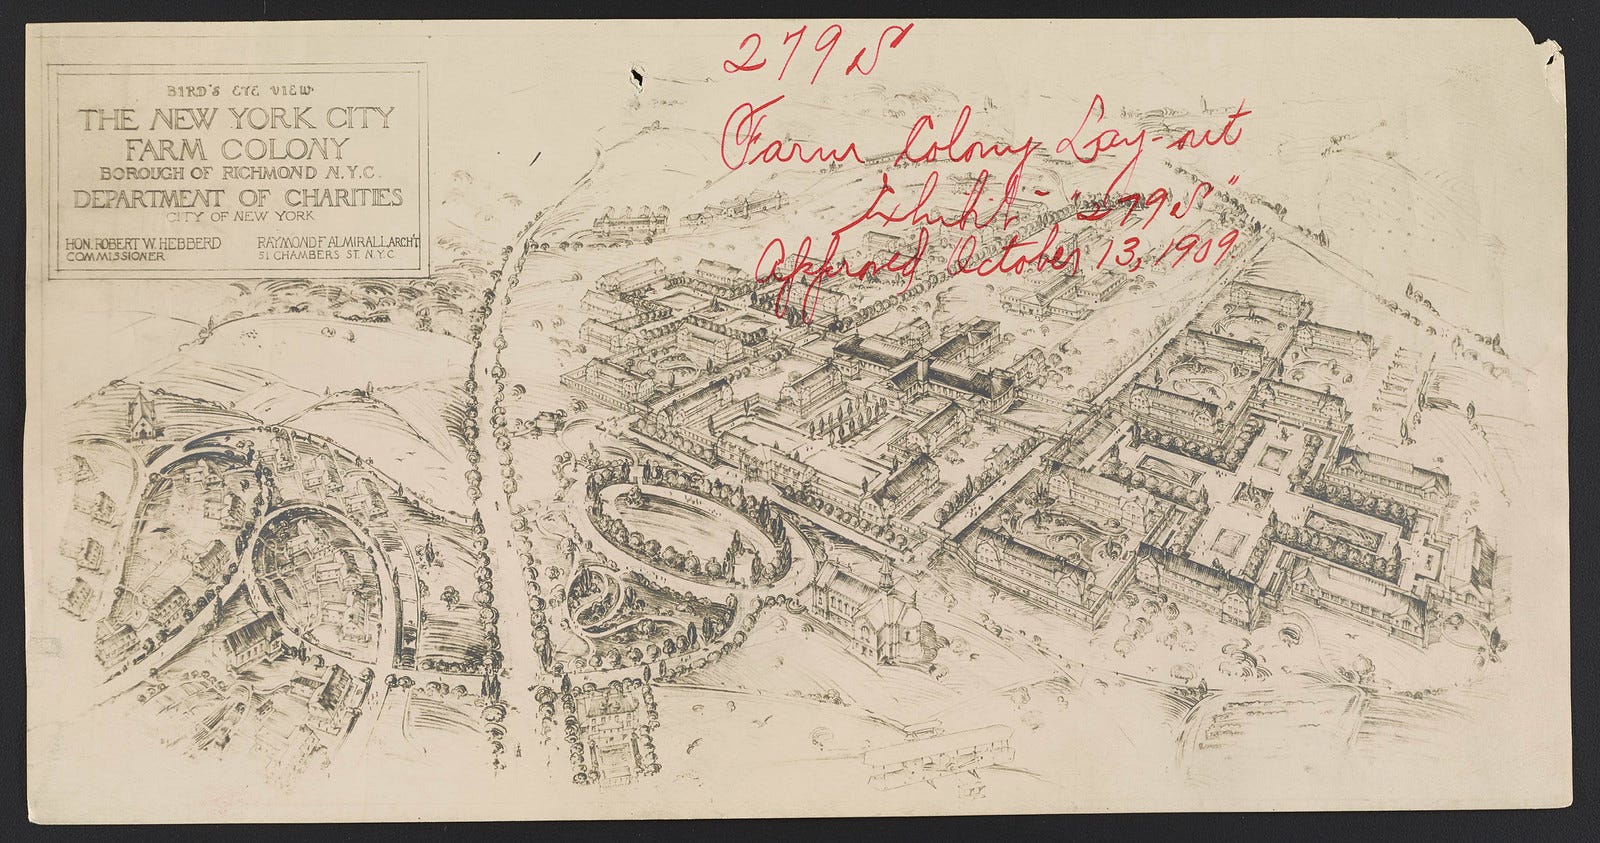 BIRD'S EYE VIEW
THE NEW YORK CITY
FARM COLONY
BOROUGH OF RICHMOND N.Y.C.
DEPARTMENT OF CHARITIES
CITY OF NEW YORK
HON. ROBERT W. HEBBERD
COMMISSIONER
RAYMOND F ALMIRALL ARCH'T
51 CHAMBERS ST. N.Y.C.
279 S
Farm Colony Lay-out
Exhibit - "279 S"
Approved October 13, 1909.